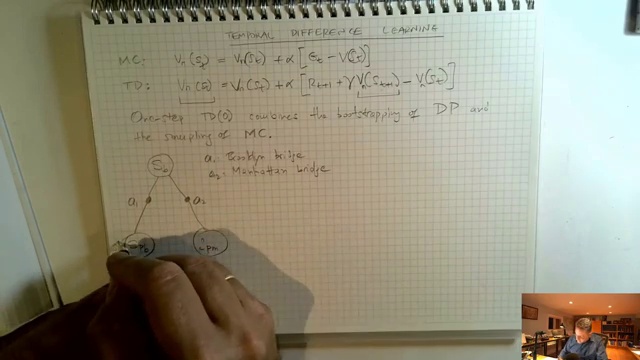 TEMPORAL DIFFERENCE LEARNING
MC: Vπ(St) = Vπ(St) + α [Gt − V(St)]
TD: Vπ(St) = Vπ(St) + α [Rt+1 + γVπ(St+1) − Vπ(St)]
One-step TD(0) combines the bootstrapping of DP and
the sampling of MC.
S0
a1: Brooklyn bridge
a2: Manhattan bridge
a1
a2
2pm